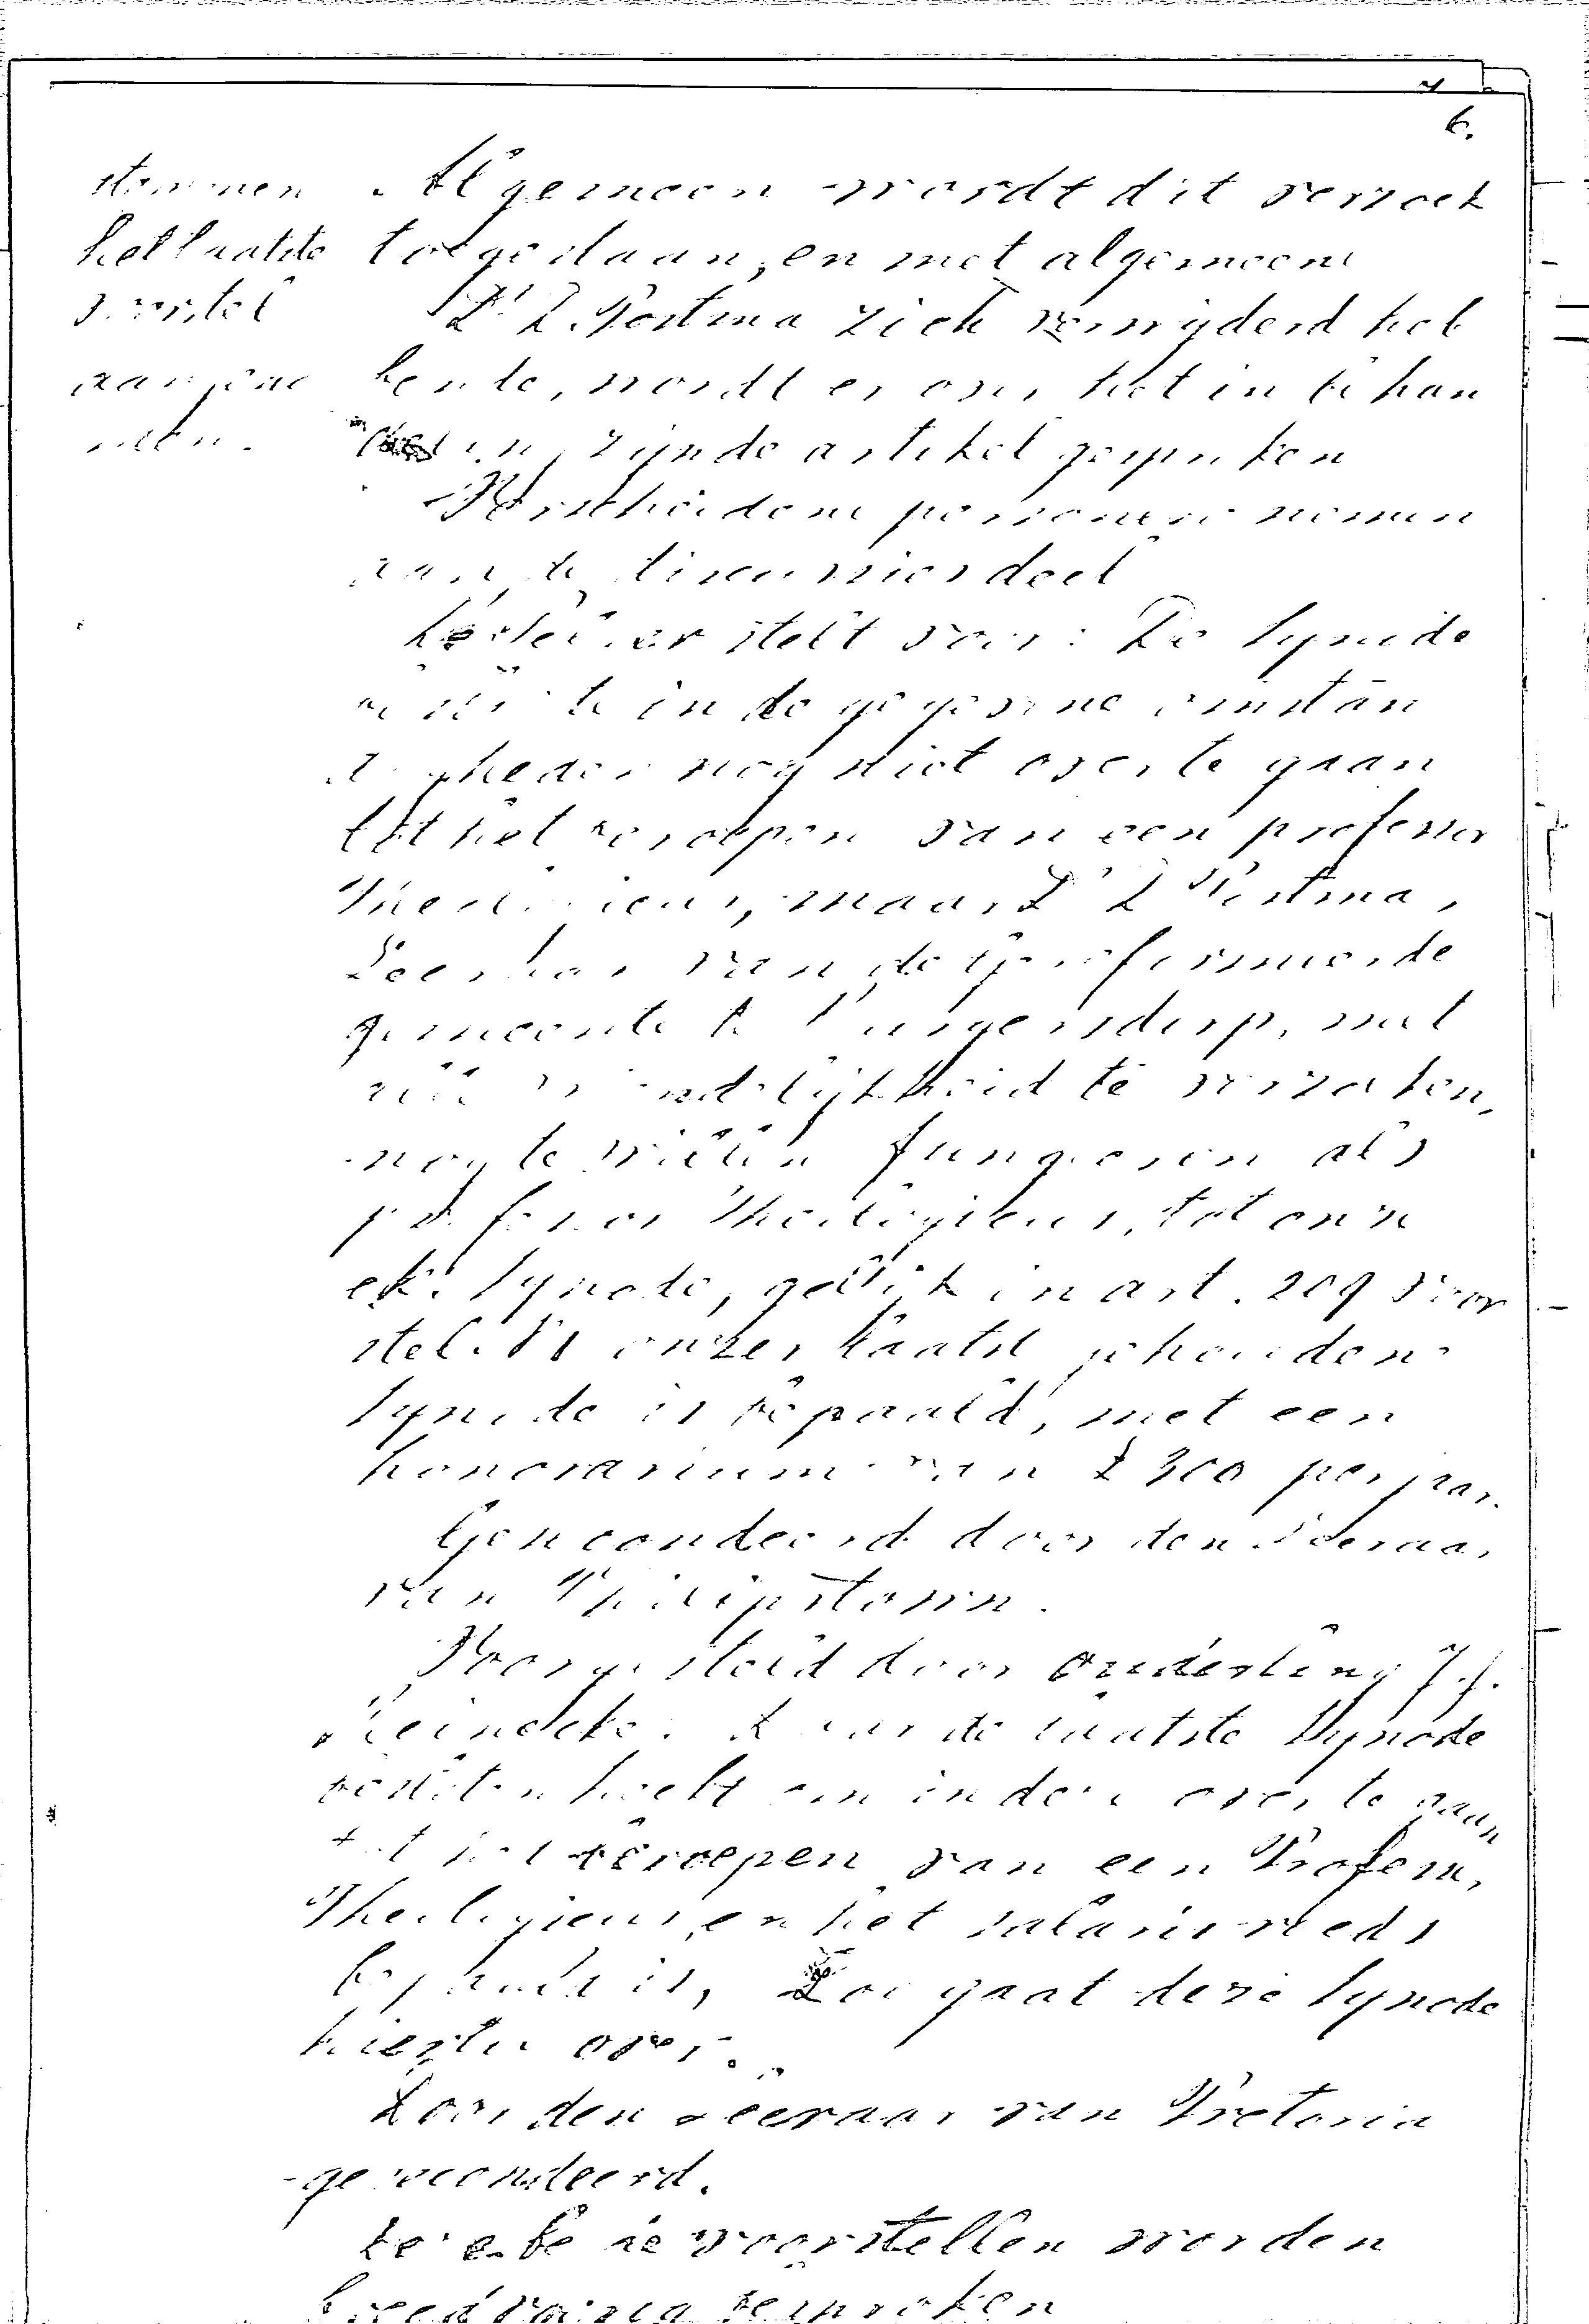 6.
stemmen
het laatste
voorstel
aangeno
men.
Algemeen wordt dit verzoek
toegestaan, en met algemeene
Ds D. Postma zich verwijderd heb
bende, wordt er over het in behan
deling zijnde artikel gesproken
Verscheidene personen nemen
aan de discussies deel
stelt voor: De Synode
in de gegevene omstan
digheden nog niet over te gaan
tot het beroepen van een professor
Theologicus, maar Ds D Postma,
Leeraar van de Gereformeerde
gemeente te Burgersdorp, met
alle vriendelijkheid te verzoeken,
nog te willen fungeren als
professor Theologicus, tot onze
etc. Synode, gelijk in art. 209 voor
stel onzer laatst gehouden
Synode is bepaald, met een
honorarium van £ 300 per jaar.
Gesecondeerd door den Leeraar
van Philipstown.
Voorgesteld door ouderling J. J.
Daar de laatste Synode
besloten heeft om indien over te gaan
tot het beroepen van een Professor
Theologicus, en het salaris reeds
bepaald is, Zoo gaat deze Synode
hiertoe over.
Door den Leeraar van Pretoria
gesecondeerd.
voorstellen worden
breedvoerig besproken